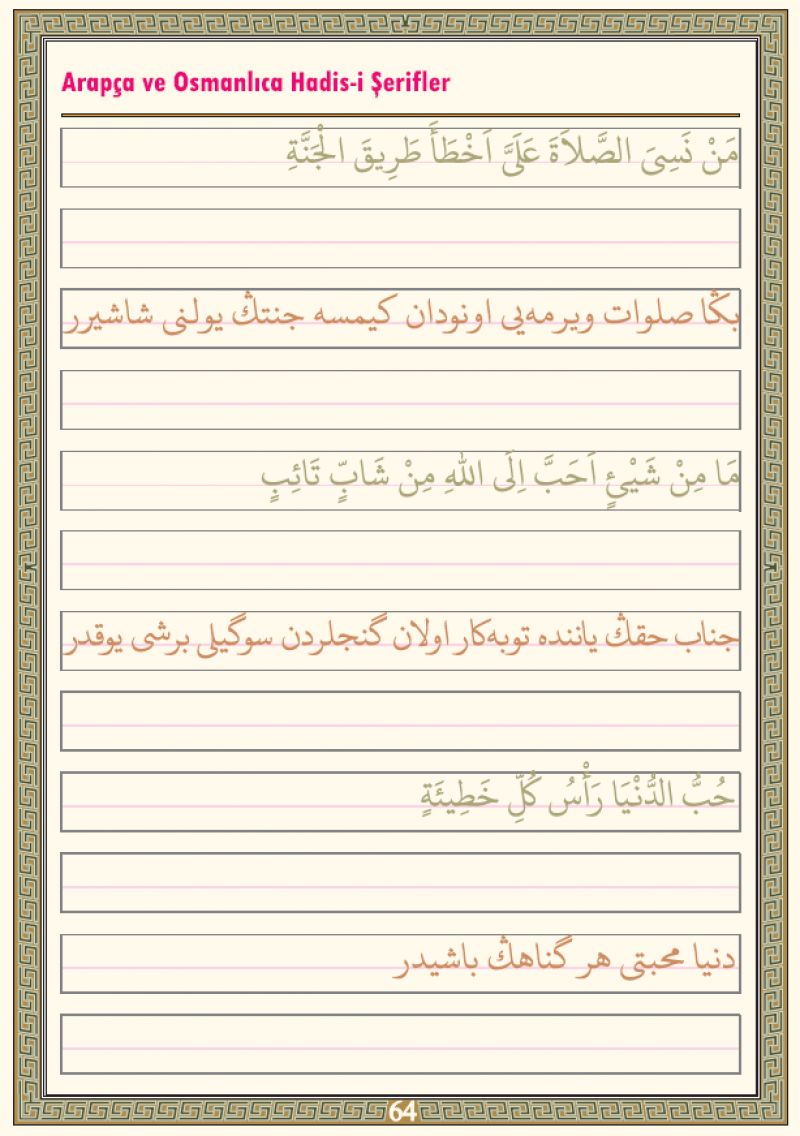 Arapça ve Osmanlıca Hadis-i Şerifler
مَنْ نَسِىَ الصَّلاَةَ عَلَىَّ اَخْطَأَ طَرِيقَ الْجَنَّةِ
بڭا صلوات ويرمه‌يى اونودان كيمسه جنتڭ يولنى شاشيرر
مَا مِنْ شَيْئٍ اَحَبَّ اِلَى اللهِ مِنْ شَابٍّ تَائِبٍ
جناب حقڭ ياننده توبه‌كار اولان گنجلردن سوگيلى برشى يوقدر
حُبُّ الدُّنْيَا رَأْسُ كُلِّ خَطِيئَةٍ
دنيا محبتى هر گناهڭ باشيدر
64